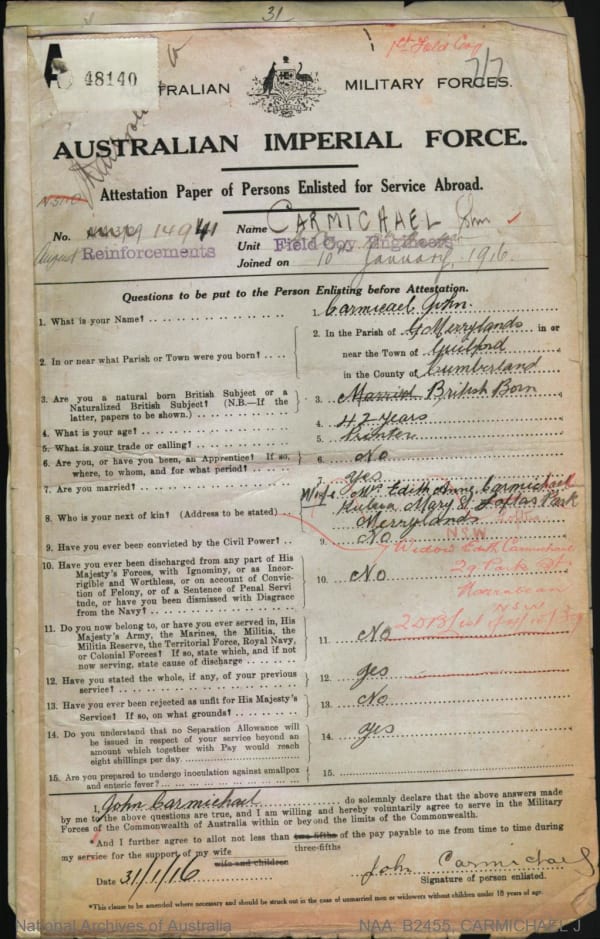 31
1st Field Coy
7/7
A
48140
AUSTRALIAN MILITARY FORCES.
AUSTRALIAN IMPERIAL FORCE.
Attestation Paper of Persons Enlisted for Service Abroad.
No. 14941 Name CARMICHAEL John
August Reinforcements Unit Field Coy Engineers
Joined on 10 January 1916.
Questions to be put to the Person Enlisting before Attestation.
1. What is your Name? 1. Carmicael John.
2. In or near what Parish or Town were you born? 2. In the Parish of Merrylands in or
near the Town of Guilford
in the County of Cumberland
3. Are you a natural born British Subject or a
Naturalized British Subject? (N.B.—If the
latter, papers to be shown.) 3. Married British Born
4. What is your age? 4. 42 Years
5. What is your trade or calling? 5.
6. Are you, or have you been, an Apprentice? If so,
where, to whom, and for what period? 6. No.
7. Are you married? 7. Yes
8. Who is your next of kin? (Address to be stated) 8. Wife Mrs Edith Carmichael
Mary St Loftas Park
Merrylands
NSW
9. Have you ever been convicted by the Civil Power? 9. No
Widow Edith Carmichael
29 Park St,
NSW
10. Have you ever been discharged from any part of His
Majesty's Forces, with Ignominy, or as Incor-
rigible and Worthless, or on account of Convic-
tion of Felony, or of a Sentence of Penal Servi-
tude, or have you been dismissed with Disgrace
from the Navy? 10. No
11. Do you now belong to, or have you ever served in, His
Majesty's Army, the Marines, the Militia, the
Militia Reserve, the Territorial Force, Royal Navy,
or Colonial Forces? If so, state which, and if not
now serving, state cause of discharge 11. No
12. Have you stated the whole, if any, of your previous
service? 12. Yes
13. Have you ever been rejected as unfit for His Majesty's
Service? If so, on what grounds? 13. No
14. Do you understand that no Separation Allowance will
be issued in respect of your service beyond an
amount which together with Pay would reach
eight shillings per day. 14. Yes
15. Are you prepared to undergo inoculation against smallpox
and enteric fever? 15.
I, John Carmichael do solemnly declare that the above answers made
by me to the above questions are true, and I am willing and hereby voluntarily agree to serve in the Military
Forces of the Commonwealth of Australia within or beyond the limits of the Commonwealth.
*And I further agree to allot not less than two-fifths of the pay payable to me from time to time during
three-fifths
my service for the support of my wife
wife and children
Date 31/1/16 John Carmichael
Signature of person enlisted.
*This clause to be amended where necessary and should be struck out in the case of unmarried men or widowers without children under 18 years of age.
National Archives of Australia NAA: B2455, CARMICHAEL J